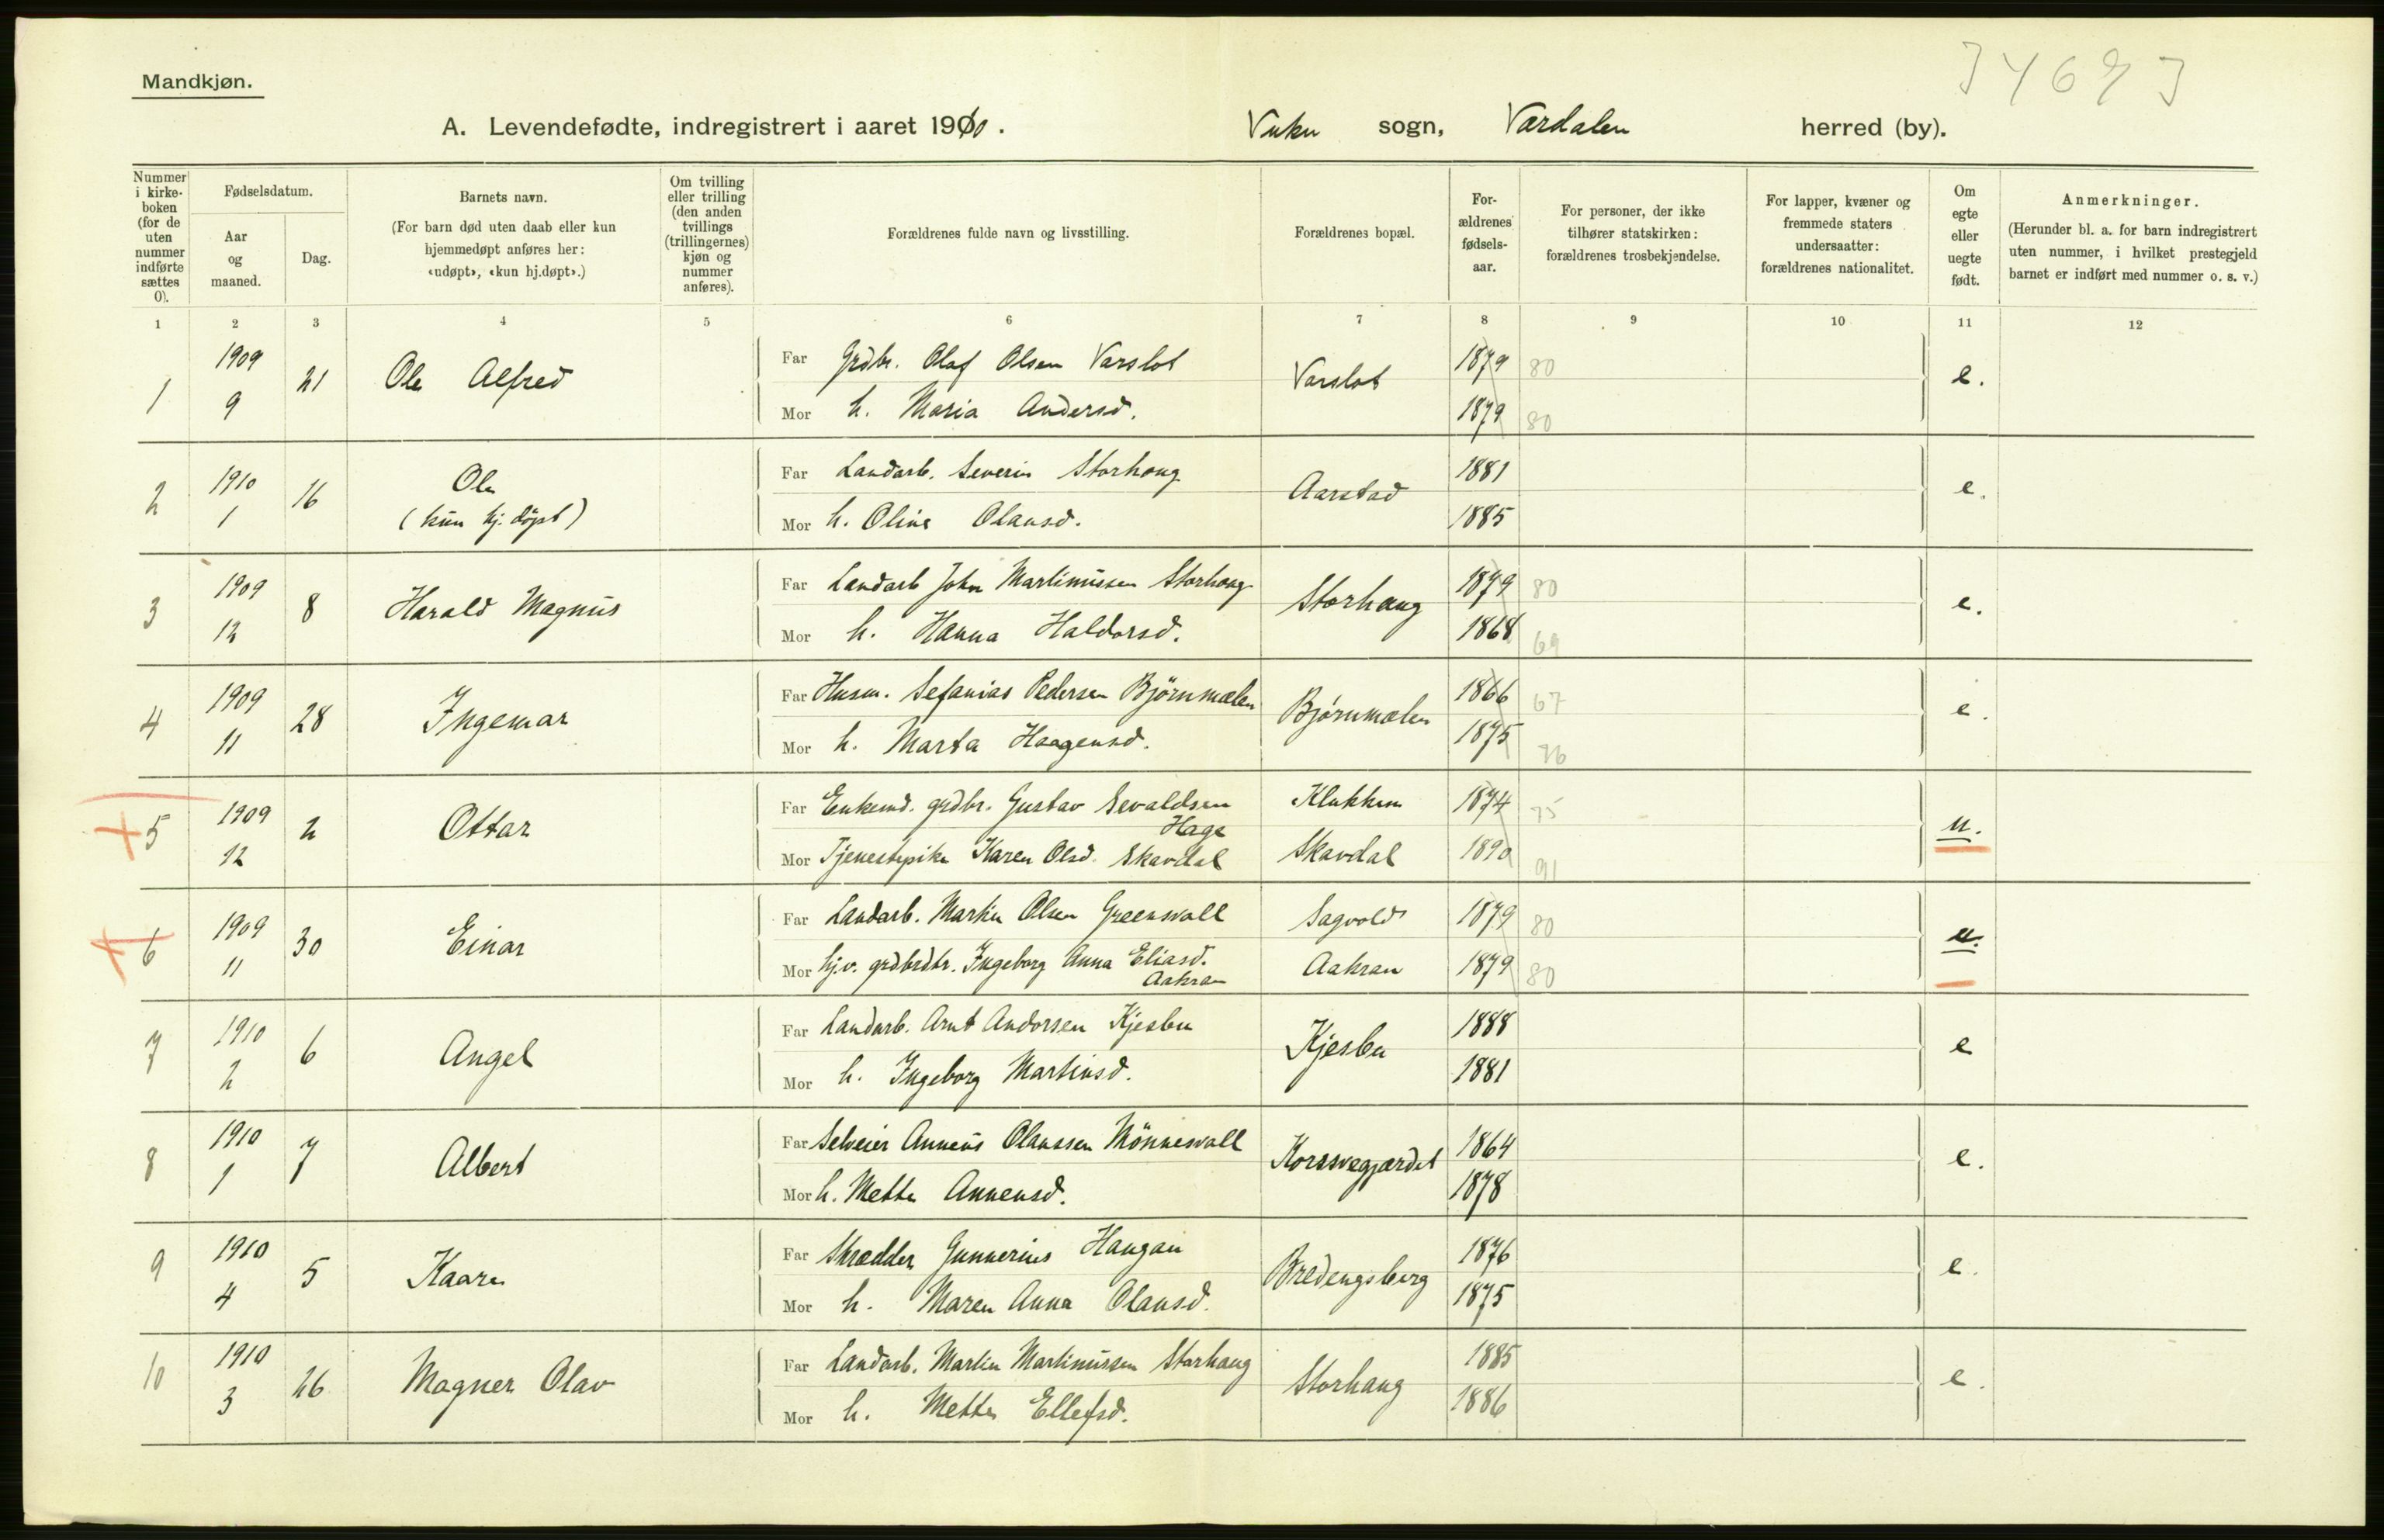 Mandkjøn.
A. Levendefødte, indregistrert i aaret 1910. Vuku sogn, Værdalen herred (by).
Nummer i kirke-boken (for de uten nummer indførte sættes 0).
Fødselsdatum.
Aar og maaned.
Dag.
Barnets navn.
(For barn død uten daab eller kun hjemmedøpt anføres her: «udøpt», «kun hj.døpt».)
Om tvilling eller trilling (den anden tvillings (trillingernes) kjøn og nummer anføres).
Forældrenes fulde navn og livsstilling.
Forældrenes bopæl.
For-ældrenes fødsels-aar.
For personer, der ikke tilhører statskirken: forældrenes trosbekjendelse.
For lapper, kvæner og fremmede staters undersaatter: forældrenes nationalitet.
Om egte eller uegte født.
Anmerkninger.
(Herunder bl. a. for barn indregistrert uten nummer, i hvilket prestegjeld barnet er indført med nummer o. s. v.)
1 2 3 4 5 6 7 8 9 10 11 12
1 1909 9 21 Ole Alfred
Far Grdbr. Olaf Olsen Varslot Varslot 1879 80 e.
Mor h. Maria Andersd. 1879 80
2 1910 1 16 Ole
(kun hj. døpt)
Far Landarb. Severin Storhaug Aarstad 1881 e.
Mor h. Oline Olausd. 1885
3 1909 12 8 Harald Magnus
Far Landarb John Martinussen Storhaug Storhaug 1879 80 e.
Mor h. Hanna Haldorsd. 1868 69
4 1909 11 28 Ingemar
Far Husm. Sefanias Pedersen Bjørnmælen Bjørnmælen 1866 67 e.
Mor h. Marta Haagensd. 1875 76
5 1909 12 2 Ottar
Far Enkemd. grdbr. Gustav Sevaldsen Hage Klukken 1874 75 u.
Mor Tjenestepike Karen Olsd. Skavdal Skavdal 1890 91
6 1909 11 30 Einar
Far Landarb. Martin Olsen Greenvall Sagvold 1879 80 u.
Mor hj.v. grdbrdtr. Ingeborg Anna Eliasd. Aakran Aakran 1879 80
7 1910 2 6 Angel
Far Landarb. Arnt Andorsen Kjesbu Kjesbu 1888 e
Mor h. Ingeborg Martinsd. 1881
8 1910 1 7 Albert
Far Selveier Annæus Olaussen Mönnesvall Korssvegjærdet 1864 e.
Mor h. Mette Annensd. 1878
9 1910 4 5 Kaare
Far Skrædder Gunnerius Haugan Bredengsberg 1876 e.
Mor h. Maren Anna Olausd. 1875
10 1910 3 26 Magner Olav
Far Landarb. Martin Martinussen Storhaug Storhaug 1885 e.
Mor h. Mette Ellefsd. 1886